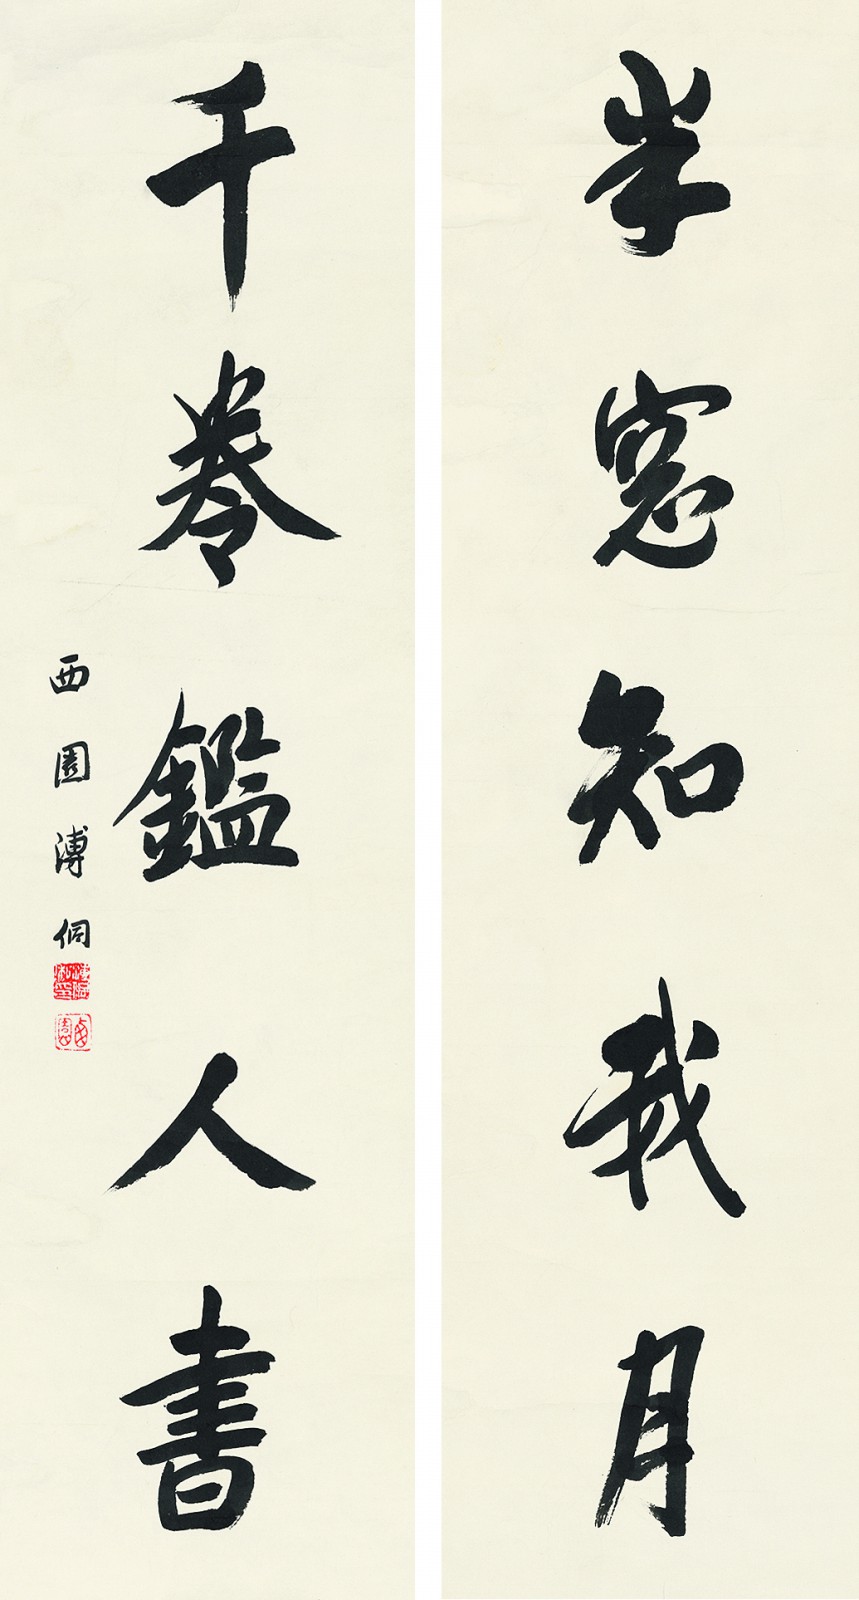 半窻知我月
千卷鑑人書
西園溥侗